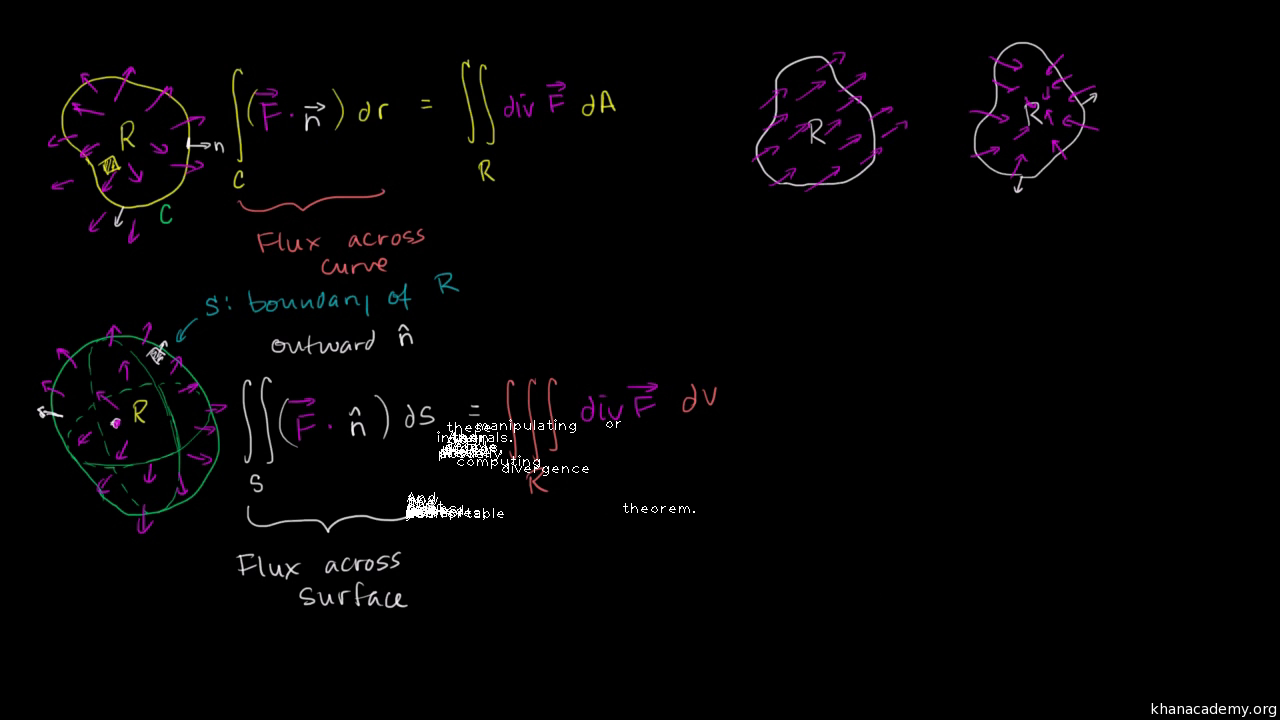 R
n
C
∫ (F⃗ · n⃗) dr = ∬ div F⃗ dA
C R
Flux across
curve
R
R
S: boundary of R
outward n̂
R
∬ (F⃗ · n̂) dS = ∭ div F⃗ dV
S R
these manipulating or
computing
divergence
And
theorem.
Flux across
surface
khanacademy.org